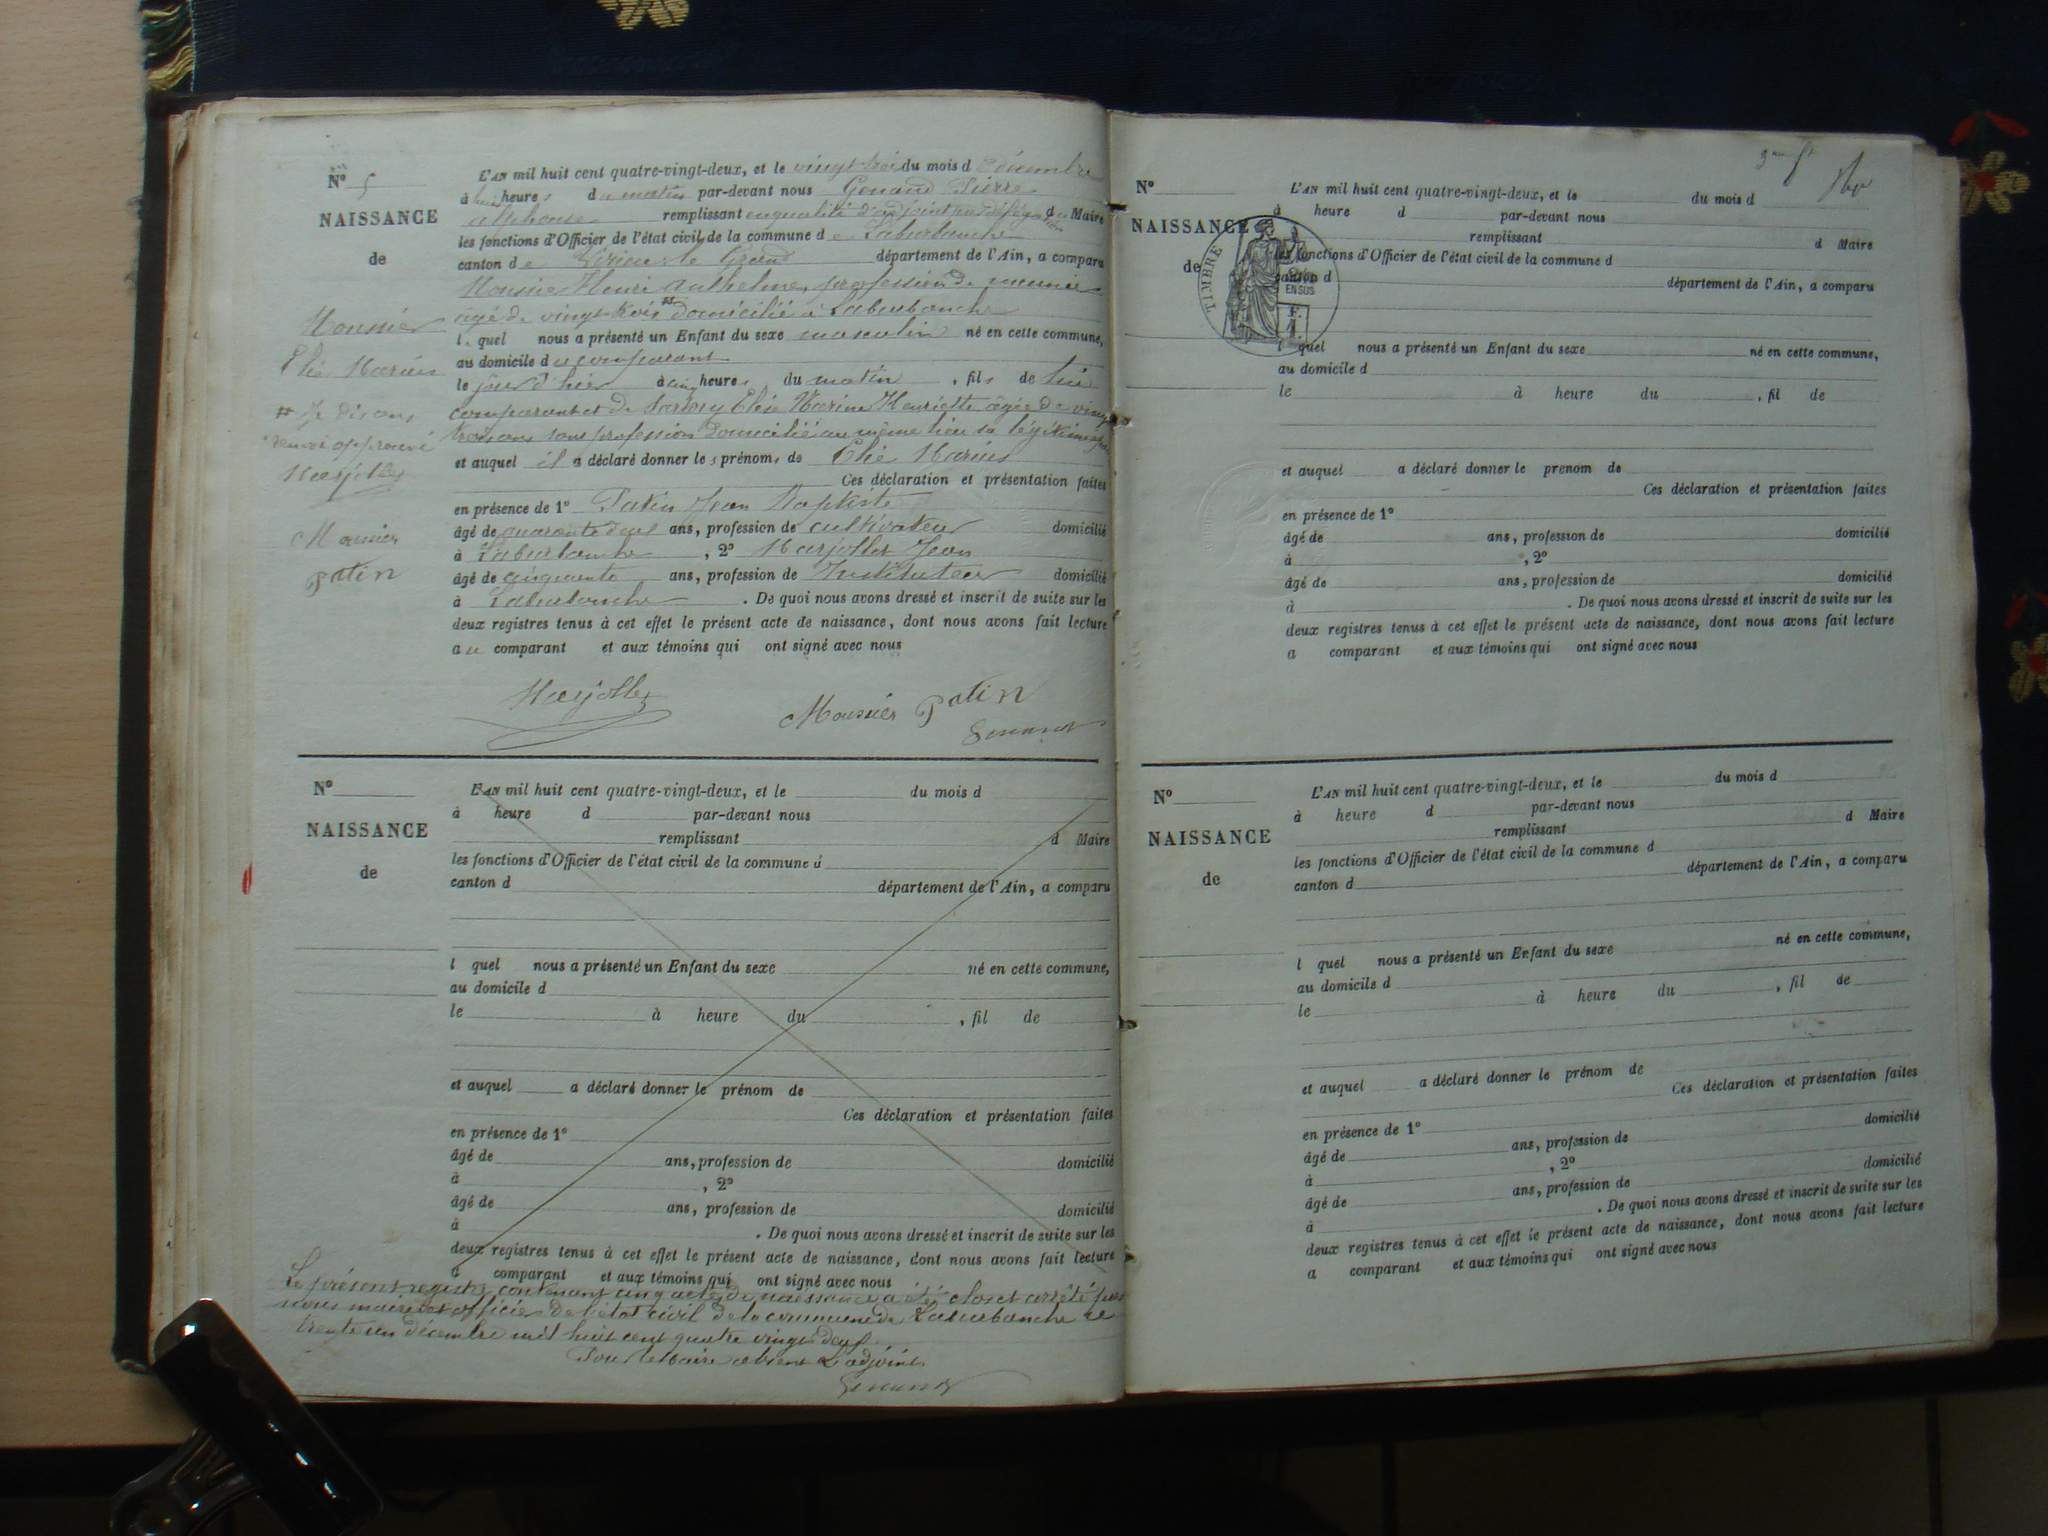 N° 5
NAISSANCE
de
Mounier
Elie Marius
Je dis ans
renvoi approuvé
Marjollet
Mounier
Patin
L'AN mil huit cent quatre-vingt-deux, et le vingt trois du mois d décembre
à heures du matin par-devant nous Genand Pierre
alphonse remplissant en qualité d'adjoint par délégation du Maire
les fonctions d'Officier de l'état civil de la commune de Laburbanche
canton de Virieu le Grand département de l'Ain, a comparu
Mounier Henri Anthelme, profession de meunier
âgé de vingt trois domicilié à Laburbanche
lequel nous a présenté un Enfant du sexe masculin né en cette commune,
au domicile du comparant
le jour d'hier à cinq heures du matin, fils de lui
comparant et de Elise Marine Henriette âgée de vingt
trois ans sans profession domiciliée au même lieu sa légitime
et auquel il a déclaré donner les prénoms de Elie Marius
Ces déclaration et présentation faites
en présence de 1° Patin Jean Baptiste
âgé de quarante deux ans, profession de cultivateur domicilié
à Laburbanche, 2° Marjollet Jean
âgé de cinquante ans, profession de Instituteur domicilié
à Laburbanche. De quoi nous avons dressé et inscrit de suite sur les
deux registres tenus à cet effet le présent acte de naissance, dont nous avons fait lecture
au comparant et aux témoins qui ont signé avec nous
Marjollet
Mounier Patin
Genand
N°
NAISSANCE
de
L'AN mil huit cent quatre-vingt-deux, et le du mois d
à heure d par-devant nous
remplissant d Maire
les fonctions d'Officier de l'état civil de la commune d
canton d département de l'Ain, a comparu
l quel nous a présenté un Enfant du sexe né en cette commune,
au domicile d
le à heure du , fil de
et auquel a déclaré donner le prénom de
Ces déclaration et présentation faites
en présence de 1°
âgé de ans, profession de domicilié
à , 2°
âgé de ans, profession de domicilié
à . De quoi nous avons dressé et inscrit de suite sur les
deux registres tenus à cet effet le présent acte de naissance, dont nous avons fait lecture
a comparant et aux témoins qui ont signé avec nous
Le présent registre contenant cinq actes de naissance a été clos et arrêté par
nous maire et officier de l'état civil de la commune de Laburbanche le
trente un décembre mil huit cent quatre vingt deux.
Pour le Maire absent L'adjoint
Genand
N°
NAISSANCE
de
TIMBRE
L'AN mil huit cent quatre-vingt-deux, et le du mois d
à heure d par-devant nous
remplissant d Maire
les fonctions d'Officier de l'état civil de la commune d
canton d département de l'Ain, a comparu
l quel nous a présenté un Enfant du sexe né en cette commune,
au domicile d
le à heure du , fil de
et auquel a déclaré donner le prenom de
Ces déclaration et présentation faites
en présence de 1°
âgé de ans, profession de domicilié
à , 2°
âgé de ans, profession de domicilié
à . De quoi nous avons dressé et inscrit de suite sur les
deux registres tenus à cet effet le présent acte de naissance, dont nous avons fait lecture
a comparant et aux témoins qui ont signé avec nous
N°
NAISSANCE
de
L'AN mil huit cent quatre-vingt-deux, et le du mois d
à heure d par-devant nous
remplissant d Maire
les fonctions d'Officier de l'état civil de la commune d
canton d département de l'Ain, a comparu
l quel nous a présenté un Enfant du sexe né en cette commune,
au domicile d
le à heure du , fil de
et auquel a déclaré donner le prénom de
Ces déclaration et présentation faites
en présence de 1°
âgé de ans, profession de domicilié
à , 2°
âgé de ans, profession de domicilié
à . De quoi nous avons dressé et inscrit de suite sur les
deux registres tenus à cet effet le présent acte de naissance, dont nous avons fait lecture
a comparant et aux témoins qui ont signé avec nous